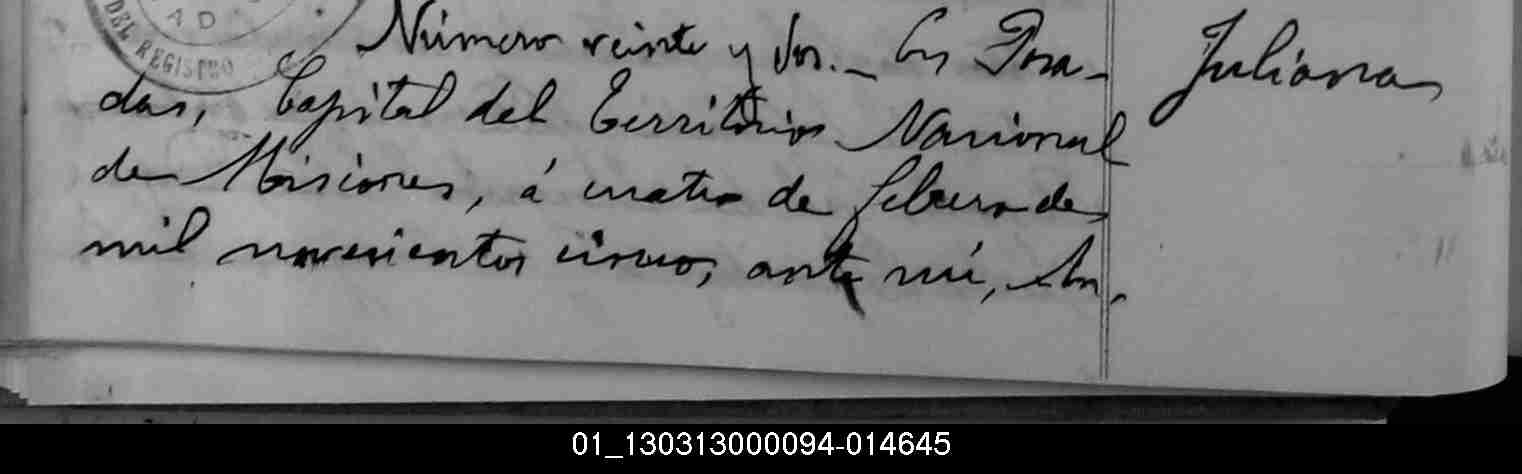 AD
DEL REGISTRO
Número veinte y dos._ En Posa-
das, Capital del Territorio Nacional
de Misiones, á cuatro de febrero de
mil novecientos cinco, ante mí,
Juliana
01_130313000094-014645